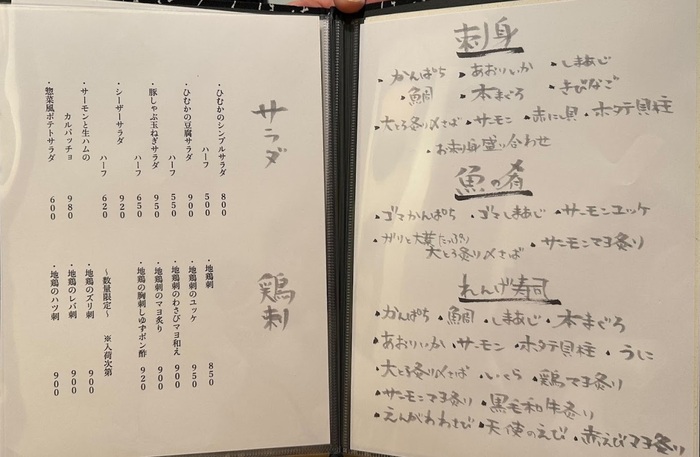 サラダ
・ひむかのシンプルサラダ 800
ハーフ 500
・ひむかの豆腐サラダ 900
ハーフ 550
・豚しゃぶ玉ねぎサラダ 950
ハーフ 650
・シーザーサラダ 920
ハーフ 620
・サーモンと生ハムの
カルパッチョ 980
・惣菜風ポテトサラダ 600
鶏刺
・地鶏刺 850
・地鶏のユッケ 950
・地鶏のわさびマヨ和え 900
・地鶏刺のマヨ炙り 900
・地鶏の胸刺しゆずポン酢 920
～数量限定～ ※入荷次第
・地鶏のズリ刺 900
・地鶏のレバ刺 900
・地鶏のハツ刺 900
刺身
・かんぱち ・あおりいか ・しまあじ
・鯛 ・本まぐろ ・きびなご
・大とろ炙り〆さば ・サーモン ・赤にし貝 ・ホタテ貝柱
・お刺身盛り合わせ
魚の肴
・ゴマかんぱち ・ゴマしまあじ ・サーモンユッケ
・ガリと大葉たっぷり
大とろ炙り〆さば ・サーモンマヨ炙り
れんげ寿司
・かんぱち ・鯛 ・しまあじ ・本まぐろ
・あおりいか ・サーモン ・ホタテ貝柱 ・うに
・大とろ炙り〆さば ・いくら ・鶏マヨ炙り
・サーモンマヨ炙り ・黒毛和牛炙り
・えんがわわさび ・天使のえび ・赤えびマヨ炙り